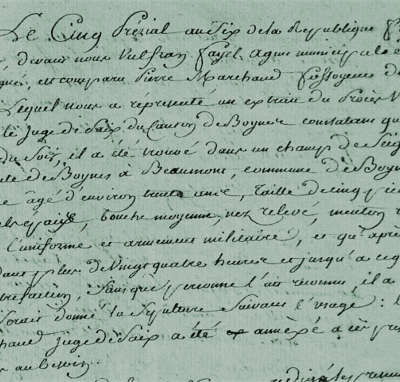 Le Cinq Prérial an Six de la République
devant nous Vulfran Fayel, Agent municipal
est comparu Pierre Marchand fossoyeur de
Lequel nous a représenté un extrait du Procès V
le juge de Paix du Canton de Boynes constatant qu
du soir, il a été trouvé dans un champ de Seig
de Boynes à Beaumont, commune de Boyn
âgé d'environ trente ans, taille de cinq pie
épaisse, bouche moyenne, nez relevé, menton
uniforme et armement militaire, et qu'aprè
plus de Vingt quatre heures et jusqu'à ce
putréfaction, sans que personne l'ait reconnu, il a
donné la Sépulture Suivant l'usage :
juge de Paix a été annexé à
au besoin